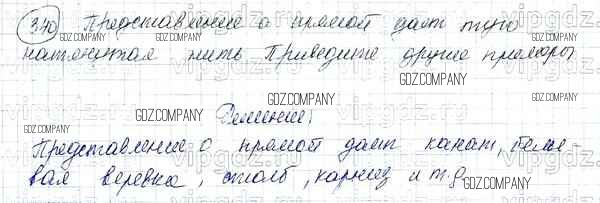 340) Представление о прямой дает туго
натянутая нить Приведите другие примеры
Решение:
Представление о прямой дает канат, белье-
вая веревка, столб, карниз и т.д.
GDZ.COMPANY
GDZ.COMPANY
GDZ.COMPANY
GDZ.COMPANY
GDZ.COMPANY
GDZ.COMPANY
GDZ.COMPANY
vipgdz.ru
vipgdz.ru
vipgdz.ru